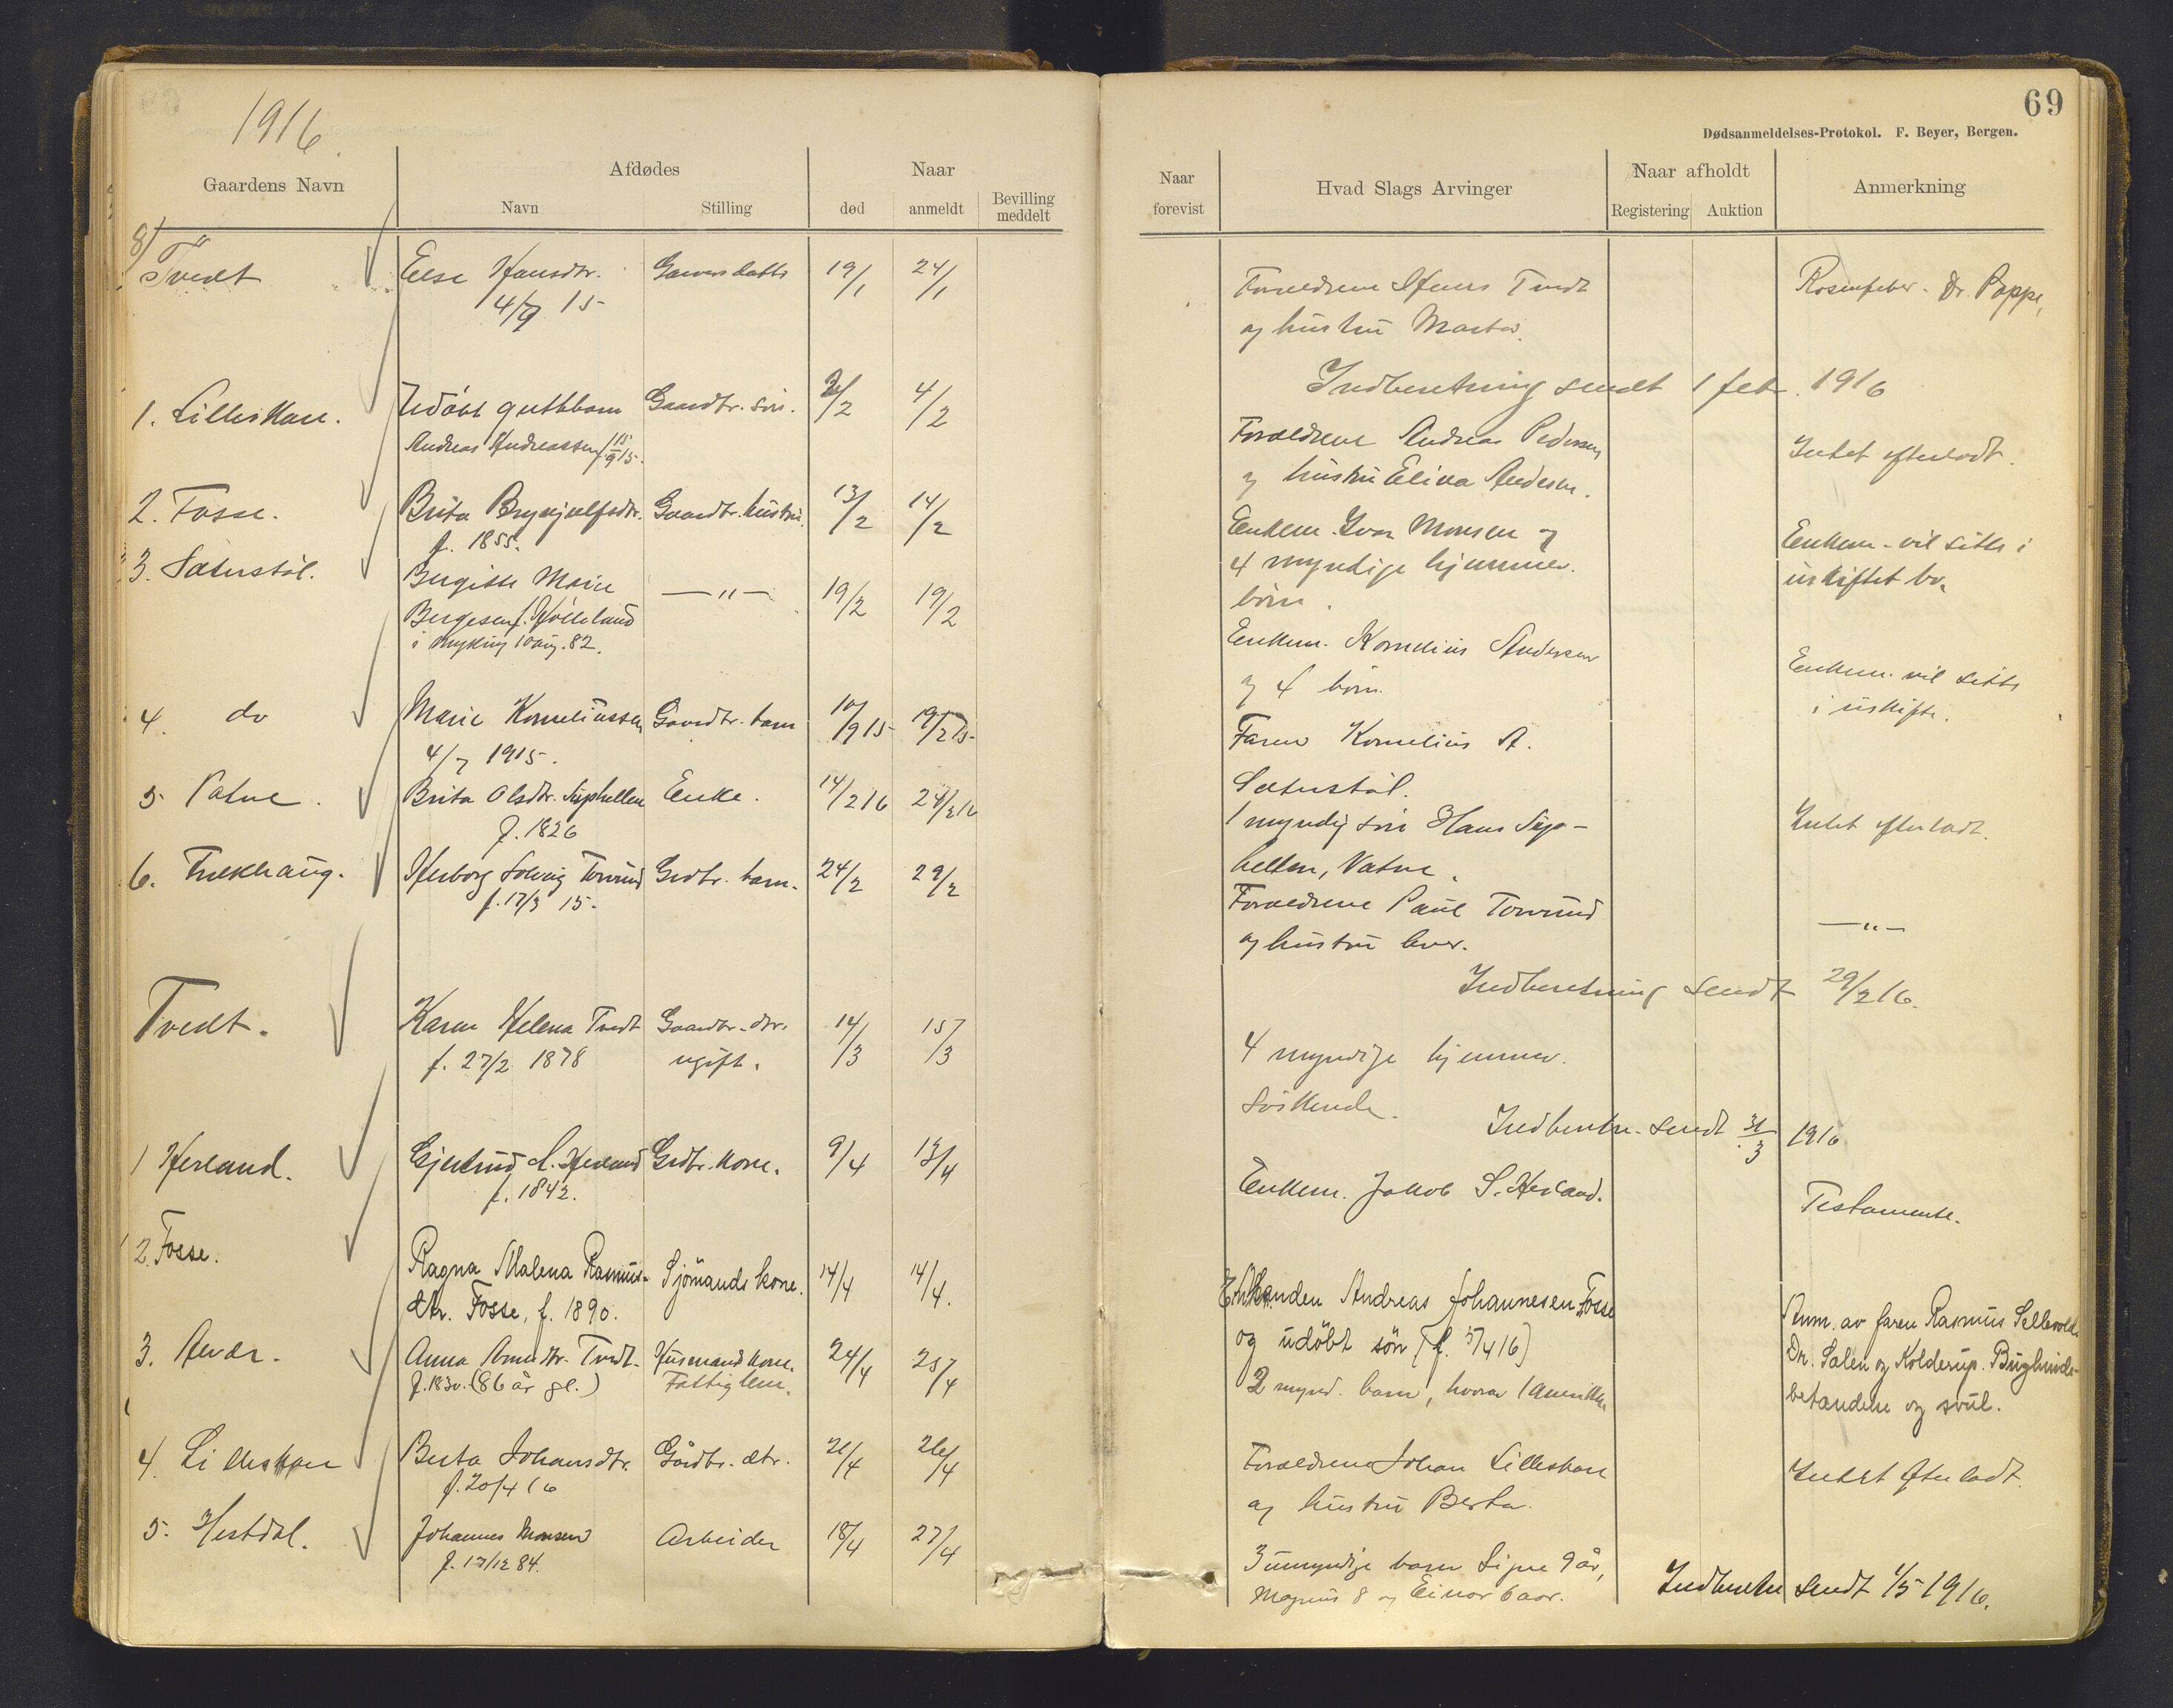 1916.
69
Dødsanmeldelses-Protokol. F. Beyer, Bergen.
Gaardens Navn
Afdødes
Navn
Stilling
Naar
død
anmeldt
Bevilling
meddelt
Naar
forevist
Hvad Slags Arvinger
Naar afholdt
Registering
Auktion
Anmerkning
8) Tvedt
Else Hansdtr.
4/9 15
19/1
24/1
Forældrene Hans Tvedt
og hustru Marta.
Rosenfeber. Dr. Poppe,
Indberetning sendt 1 febr. 1916
1. Lilleskare.
Udöbt guttbarn
Gaardbr. sön.
/2
4/2
Andreas Andreassen f. 15/9 15.
Forældrene Andreas Pedersen
og hustru Elina Andersen.
Intet efterladt.
2. Fosse.
Brita Brynjulfsdtr.
Gaardbr. hustru.
13/2
14/2
f. 1855.
Enkem. Ivar Monsen og
4 myndige hjemmev.
börn.
Enkem. vil sitte i
uskiftet bo.
3. Sæterstöl.
Bergitte Marie
—"—
19/2
19/2
Bergesen f. Hölleland
i Myking 10 aug. 82.
Enkem. Kornelius Andersen
og 4 börn.
Enkem. vil sitte
i uskifte.
4. do
Marie Korneliussen
Gaardbr. barn
10/9 15
19/2 15
4/7 1915.
Faren Kornelius A.
Sæterstöl.
5. Vatne.
Brita Olsdtr. Suphellen
Enke.
14/2 16
24/2 16
f. 1826
1 myndig sön Hans Sup-
hellen, Vatne.
Intet efterladt.
6.
Herborg Solveig Torsund
Grdbr. barn.
24/2
29/2
f. 17/3 15.
Forældrene Paul Torsund
og hustru lever.
—"—
Indberetning sendt 29/2 16.
Tvedt.
Karen Helena Tvedt
Gaardbr. dtr.
14/3
15/3
f. 27/2 1878
ugift.
4 myndige hjemmev.
söskende.
Indberetn. sendt 31/3 1916
1 Herland.
Gjertrud A. Herland
Grdbr. kone.
9/4
13/4
f. 1842.
Enkem. Jakob S. Herland.
Testamente.
2. Fosse.
Ragna Malena Rasmus-
Sjömands kone.
14/4
14/4.
dtr. Fosse, f. 1890.
Enkemanden Andreas Johannesen Fosse
og udöbt sön (f. 5/4 16)
Anm. av faren Rasmus Sellevold.
Dr. Salen og Kolderup. Bughinde-
betændelse og svul.
3.
Anna Arnedtr. Tvedt.
Husmand kone.
24/4
25/4
f. 1830. (86 år gl.)
Fattiglem.
2 mynd. barn, hvorav 1 Amerika
4. Lilleskare
Berta Johansdtr.
Gårdbr. dtr.
21/4
26/4
f. 20/4 16
Forældrene Johan Lilleskare
og hustru Berta.
Intet efterladt.
5. Hestdal.
Johannes Monsen
Arbeider
18/4
27/4
f. 17/12 84.
3 umyndige barn Signe 9 år,
Magnus 8 og Einar 6 aar.
Indberetn sendt 1/5 1916.